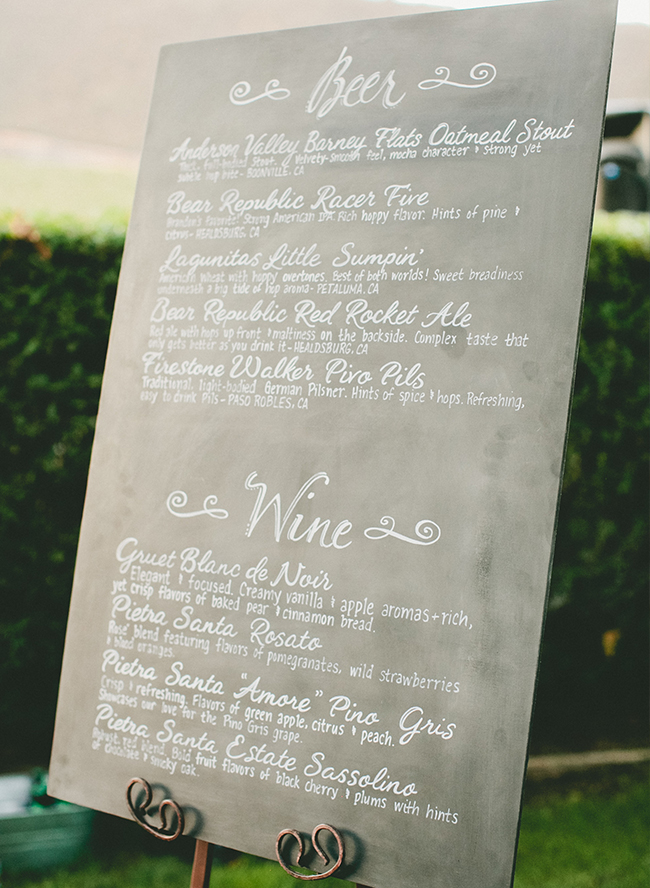 Beer
Anderson Valley Barney Flats Oatmeal Stout
full-bodied Stout. Velvety-smooth feel, mocha character & strong yet
subtle hop bite - BOONVILLE, CA
Bear Republic Racer Five
Brandon's favorite! Strong American IPA. Rich hoppy flavor. Hints of pine &
citrus - HEALDSBURG, CA
Lagunitas Little Sumpin'
American wheat with hoppy overtones. Best of both worlds! Sweet breadiness
underneath a big tide of hop aroma - PETALUMA, CA
Bear Republic Red Rocket Ale
Red ale with hops up front & maltiness on the backside. Complex taste that
only gets better as you drink it - HEALDSBURG, CA
Firestone Walker Pivo Pils
Traditional, light-bodied German Pilsner. Hints of spice & hops. Refreshing,
easy to drink Pils - PASO ROBLES, CA
Wine
Gruet Blanc de Noir
Elegant & focused. Creamy vanilla & apple aromas + rich,
yet crisp flavors of baked pear & cinnamon bread.
Pietra Santa Rosato
Rosé blend featuring flavors of pomegranates, wild strawberries
& blood oranges.
Pietra Santa "Amore" Pino Gris
Crisp & refreshing. Flavors of green apple, citrus & peach.
Showcases our love for the Pino Gris grape.
Pietra Santa Estate Sassolino
Robust red blend. Bold fruit flavors of black cherry & plums with hints
of chocolate & smoky oak.